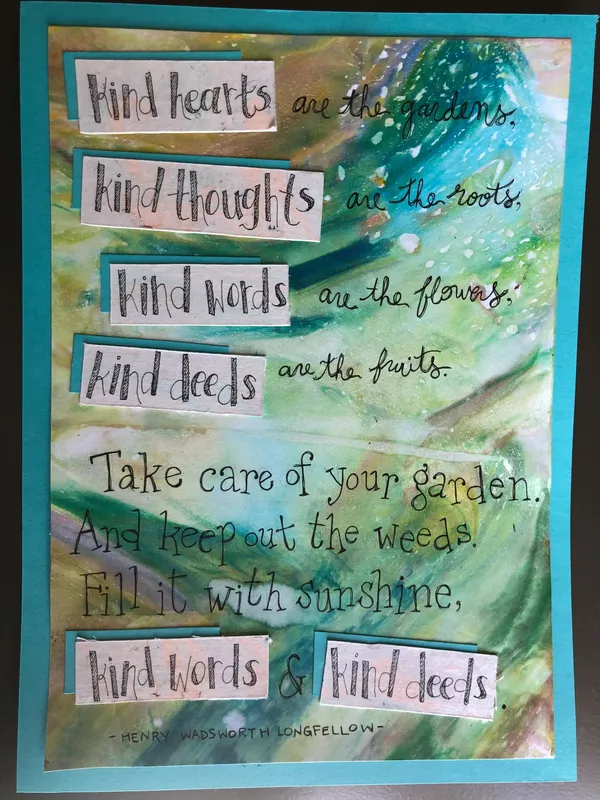 kind hearts are the gardens,
kind thoughts are the roots,
kind words are the flowers,
kind deeds are the fruits.
Take care of your garden.
And keep out the weeds.
Fill it with sunshine,
kind words & kind deeds.
- HENRY WADSWORTH LONGFELLOW -